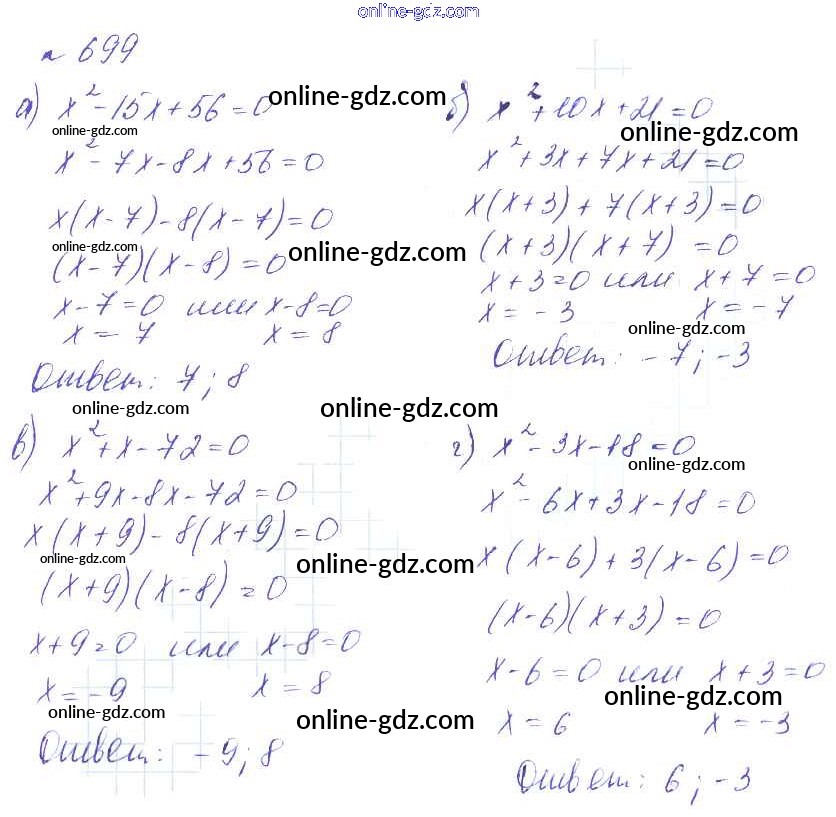 online-gdz.com
№ 699
а) x² - 15x + 56 = 0
online-gdz.com
online-gdz.com
x² - 7x - 8x + 56 = 0
x(x - 7) - 8(x - 7) = 0
online-gdz.com
(x - 7)(x - 8) = 0
online-gdz.com
x - 7 = 0 или x - 8 = 0
x = 7 x = 8
Ответ: 7; 8
online-gdz.com
б) x² + 10x + 21 = 0
online-gdz.com
x² + 3x + 7x + 21 = 0
x(x + 3) + 7(x + 3) = 0
(x + 3)(x + 7) = 0
x + 3 = 0 или x + 7 = 0
x = -3 x = -7
online-gdz.com
Ответ: -7; -3
online-gdz.com
в) x² + x - 72 = 0
x² + 9x - 8x - 72 = 0
x(x + 9) - 8(x + 9) = 0
online-gdz.com
online-gdz.com
(x + 9)(x - 8) = 0
x + 9 = 0 или x - 8 = 0
x = -9 x = 8
online-gdz.com
online-gdz.com
Ответ: -9; 8
г) x² - 3x - 18 = 0
online-gdz.com
x² - 6x + 3x - 18 = 0
x(x - 6) + 3(x - 6) = 0
(x - 6)(x + 3) = 0
x - 6 = 0 или x + 3 = 0
online-gdz.com
x = 6 x = -3
Ответ: 6; -3